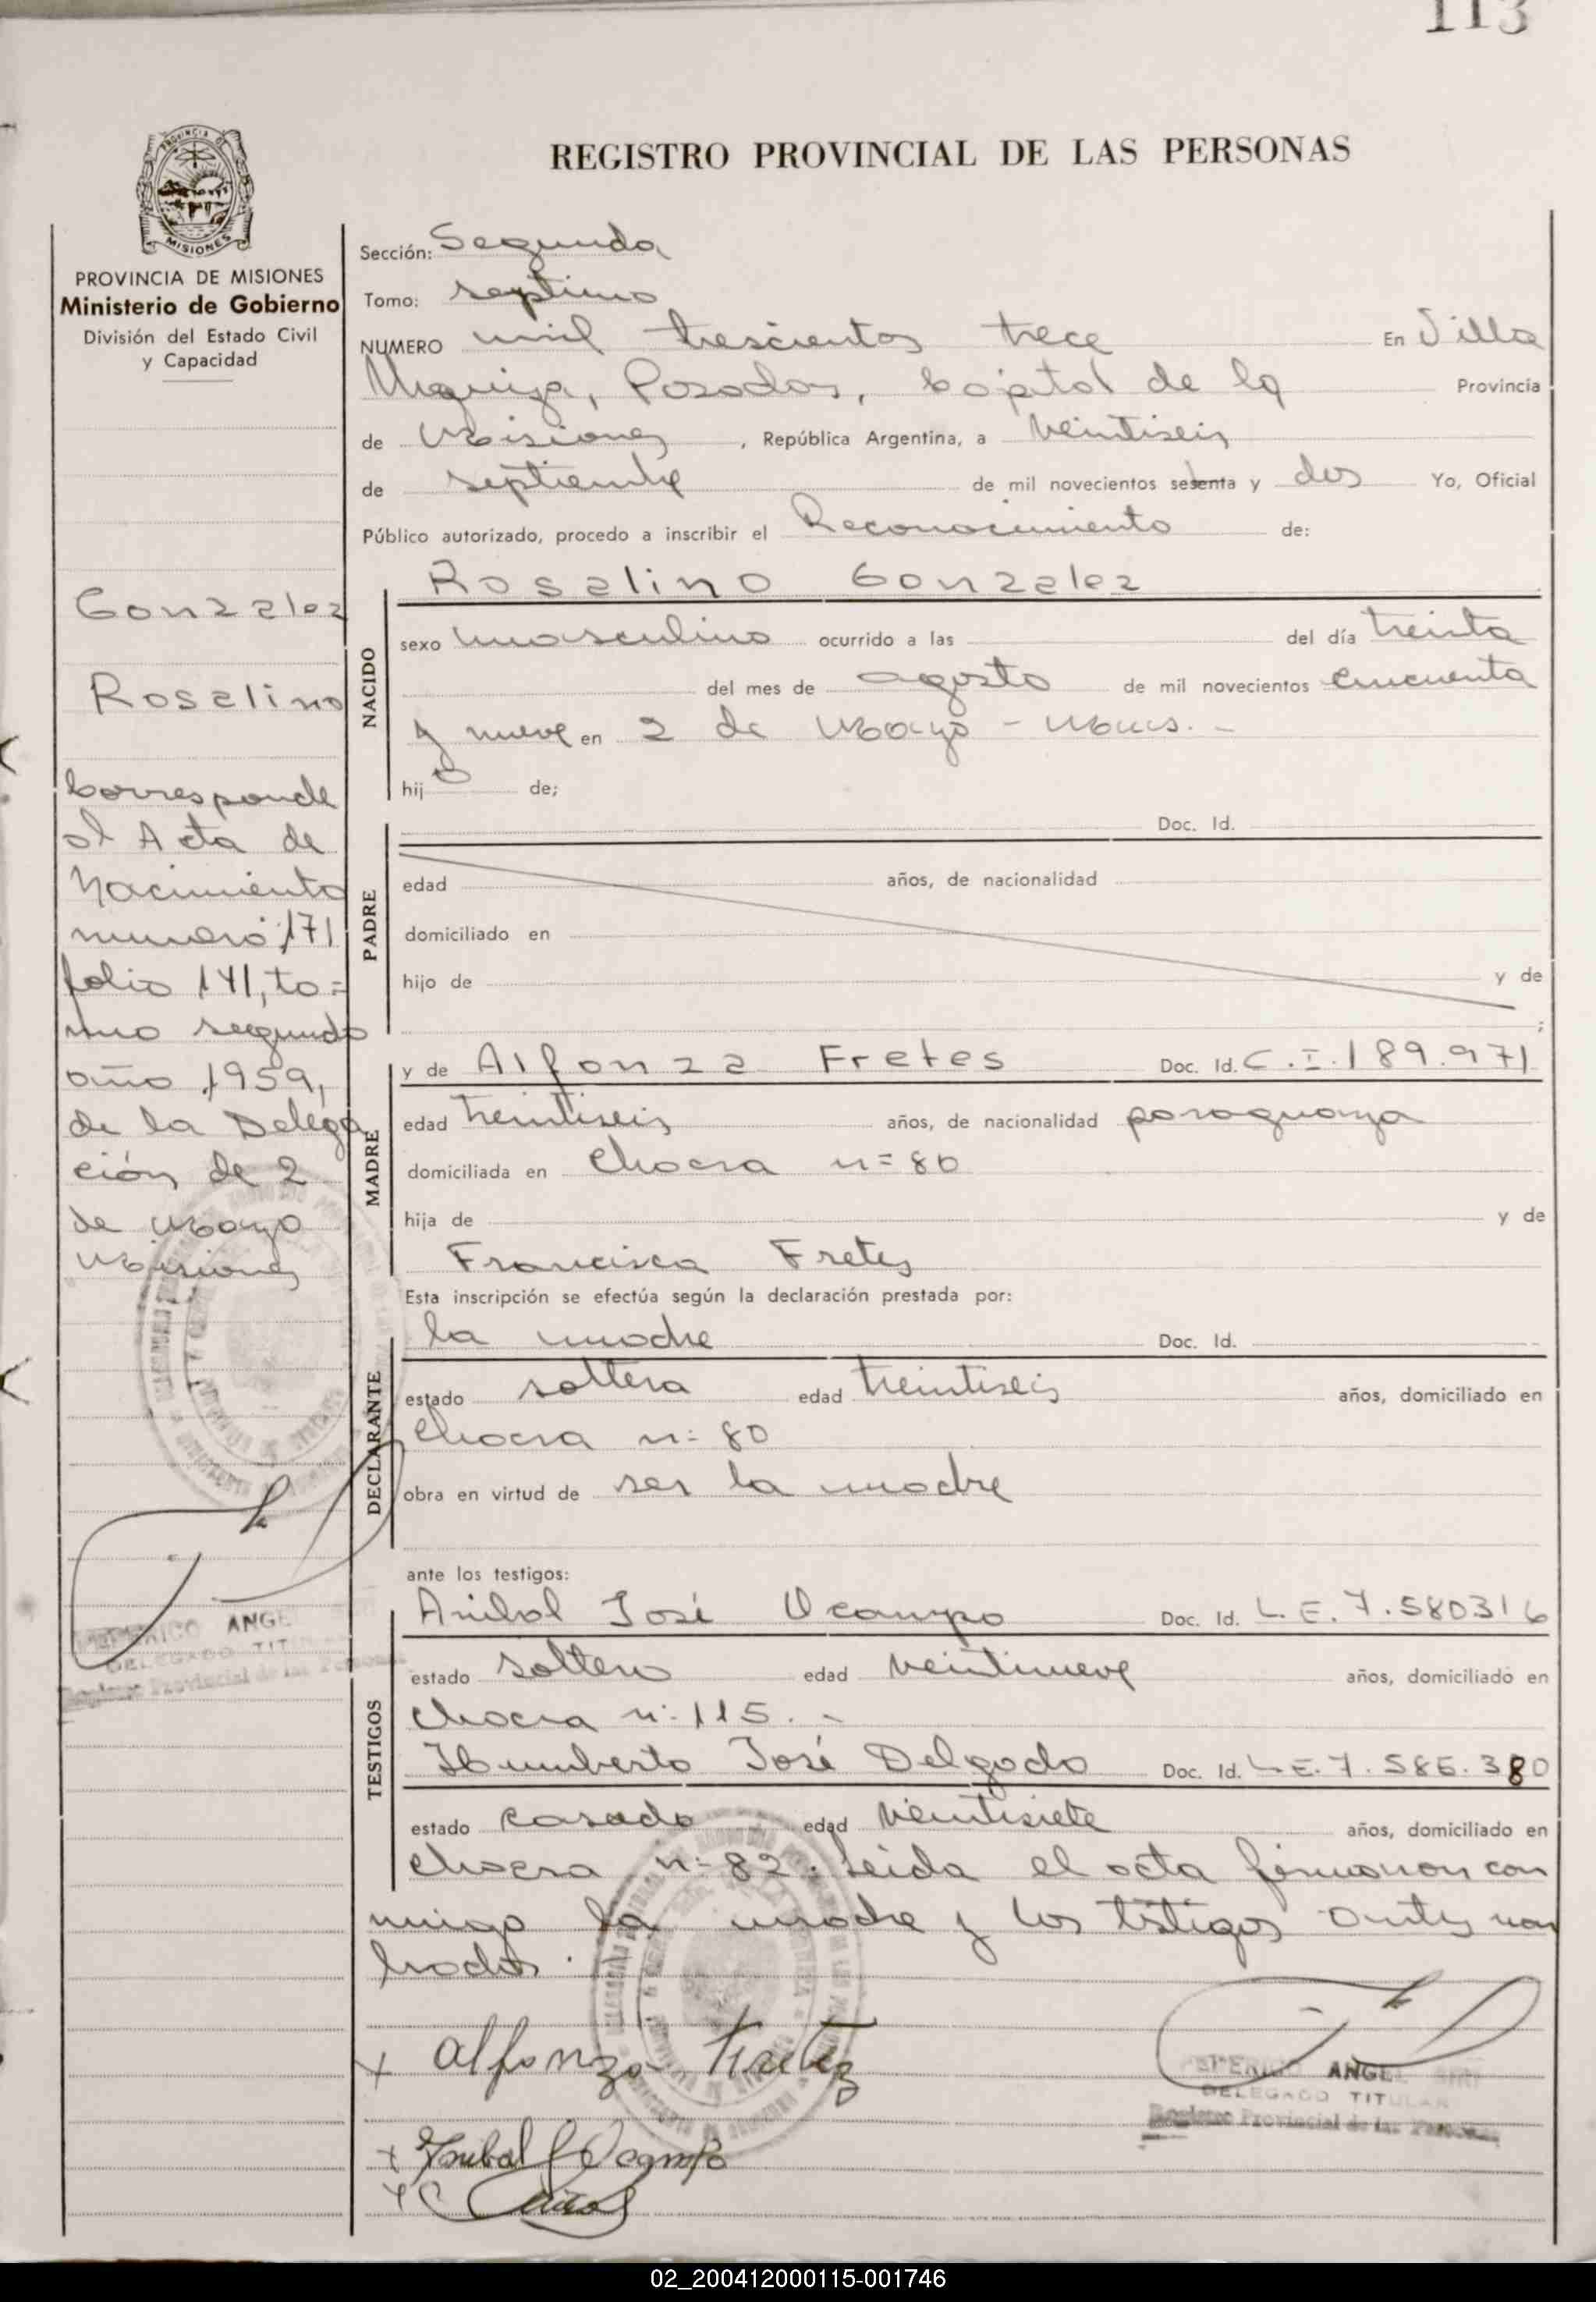 113
REGISTRO PROVINCIAL DE LAS PERSONAS
PROVINCIA
MISIONES
PROVINCIA DE MISIONES
Ministerio de Gobierno
División del Estado Civil
y Capacidad
Gonzalez
Rosalino
Corresponde
al Acta de
Nacimiento
numero 171
folio 141, to=
mo segundo
año 1959,
de la Delega
ción de 2
de Mayo
Misiones
ANGEL
DELEGADO TIT
Registro Provincial de las Personas
Sección: Segunda
Tomo: septimo
NUMERO mil trescientos trece En Villa
Urquiza, Posadas, Capital de la Provincia
de Misiones, República Argentina, a veintiseis
de septiembre de mil novecientos setenta y dos Yo, Oficial
Público autorizado, procedo a inscribir el Reconocimiento de:
NACIDO
Rosalino Gonzalez
sexo masculino ocurrido a las del día treinta
del mes de agosto de mil novecientos cincuenta
y nueve en 2 de Mayo - Mnes. -
hijo de;
PADRE
Doc. Id.
edad años, de nacionalidad
domiciliado en
hijo de y de
;
MADRE
y de Alfonza Fretes Doc. Id. C.I. 189.971
edad treintiseis años, de nacionalidad paraguaya
domiciliada en Chacra n= 80
hija de y de
Francisca Fretes
Esta inscripción se efectúa según la declaración prestada por:
DECLARANTE
la madre Doc. Id.
estado soltera edad treintiseis años, domiciliado en
Chacra n: 80
obra en virtud de ser la madre
ante los testigos:
TESTIGOS
Anibal José Ocampo Doc. Id. L.E. 7.580316
estado soltero edad veintinueve años, domiciliado en
Chacra n: 115. -
Humberto José Delgado Doc. Id. L.E. 7.586.380
estado casado edad veintisiete años, domiciliado en
chacra n= 82. Leida el acta firmaron con
migo la madre y los testigos antes nom
brados.
x Alfonza Fretez
x Anibal J Ocampo
ANGEL
DELEGADO TITULAR
Registro Provincial de las Personas
02_200412000115-001746